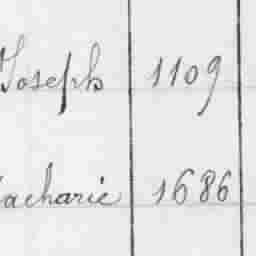 Joseph 1109
Zacharie 1686